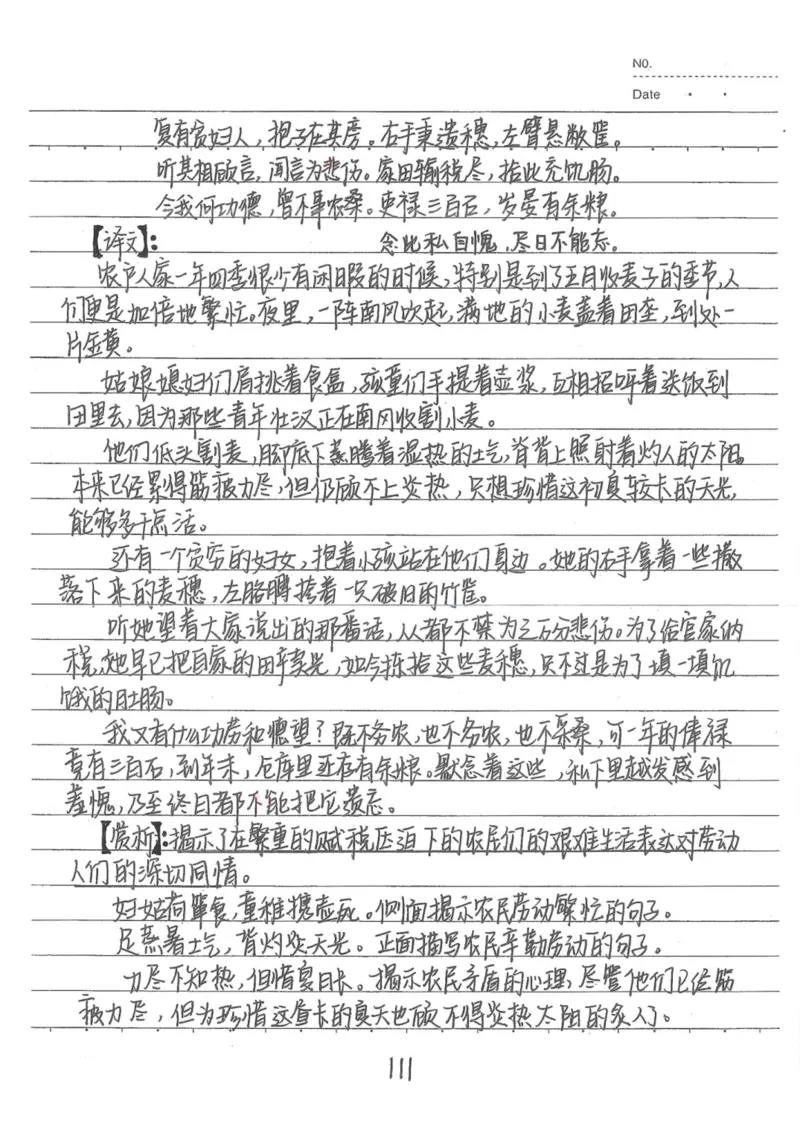 NO.
Date
复有贫妇人，抱子在其旁。右手秉遗穗，左臂悬敝筐。
听其相顾言，闻言为悲伤。家田输税尽，拾此充饥肠。
今我何功德，曾不事农桑。吏禄三百石，岁晏有余粮。
【译文】： 念此私自愧，尽日不能忘。
农户人家一年四季很少有闲暇的时候，特别是到了五月收麦子的季节，人
们便是加倍地繁忙。夜里，一阵南风吹起，满地的小麦盖着田垄，到处一
片金黄。
姑娘媳妇们肩挑着食盒，孩童们手提着壶浆，互相招呼着送饭到
田里去，因为那些青年壮汉正在南风收割小麦。
他们低头割麦，脚底下蒸腾着湿热的土气，背背上照射着灼人的太阳。
本来已经累得筋疲力尽，但仍顾不上炎热，只想珍惜这初夏较长的天光，
能够多干点活。
还有一个贫穷的妇女，抱着小孩站在他们身边。她的右手拿着一些撒
落下来的麦穗，左胳膊挎着一只破旧的竹筐。
听她望着大家说出的那番话，人都不禁为之万分悲伤。为了给官家纳
税，她早已把自家的田卖光，如今拣拾这些麦穗，只不过是为了填一填饥
饿的肚肠。
我又有什么功劳和德望？既不务农，也不务农，也不采桑，可一年的俸禄
竟有三百石，到年末，仓库里还存有余粮。默念着这些，私下里越发感到
羞愧，乃至终日都不能把它遗忘。
【赏析】：揭示了在繁重的赋税压迫下的农民们的艰难生活表达对劳动
人们的深切同情。
妇姑荷箪食，童稚携壶浆。侧面揭示农民劳动繁忙的句子。
足蒸暑土气，背灼炎天光。正面描写农民辛勤劳动的句子。
力尽不知热，但惜夏日长。揭示农民矛盾的心理，尽管他们已经筋
疲力尽，但为珍惜这昼长的夏天也顾不得炎热太阳的炙人了。
111